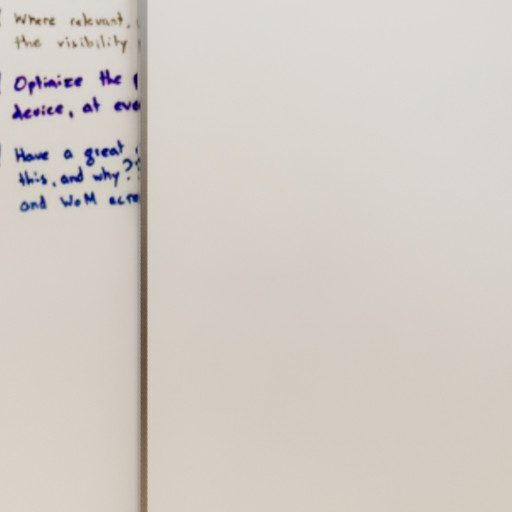 Where relevant,
the visibility
Optimize the
device, at eve
Have a great
this, and why?
and WoM acro